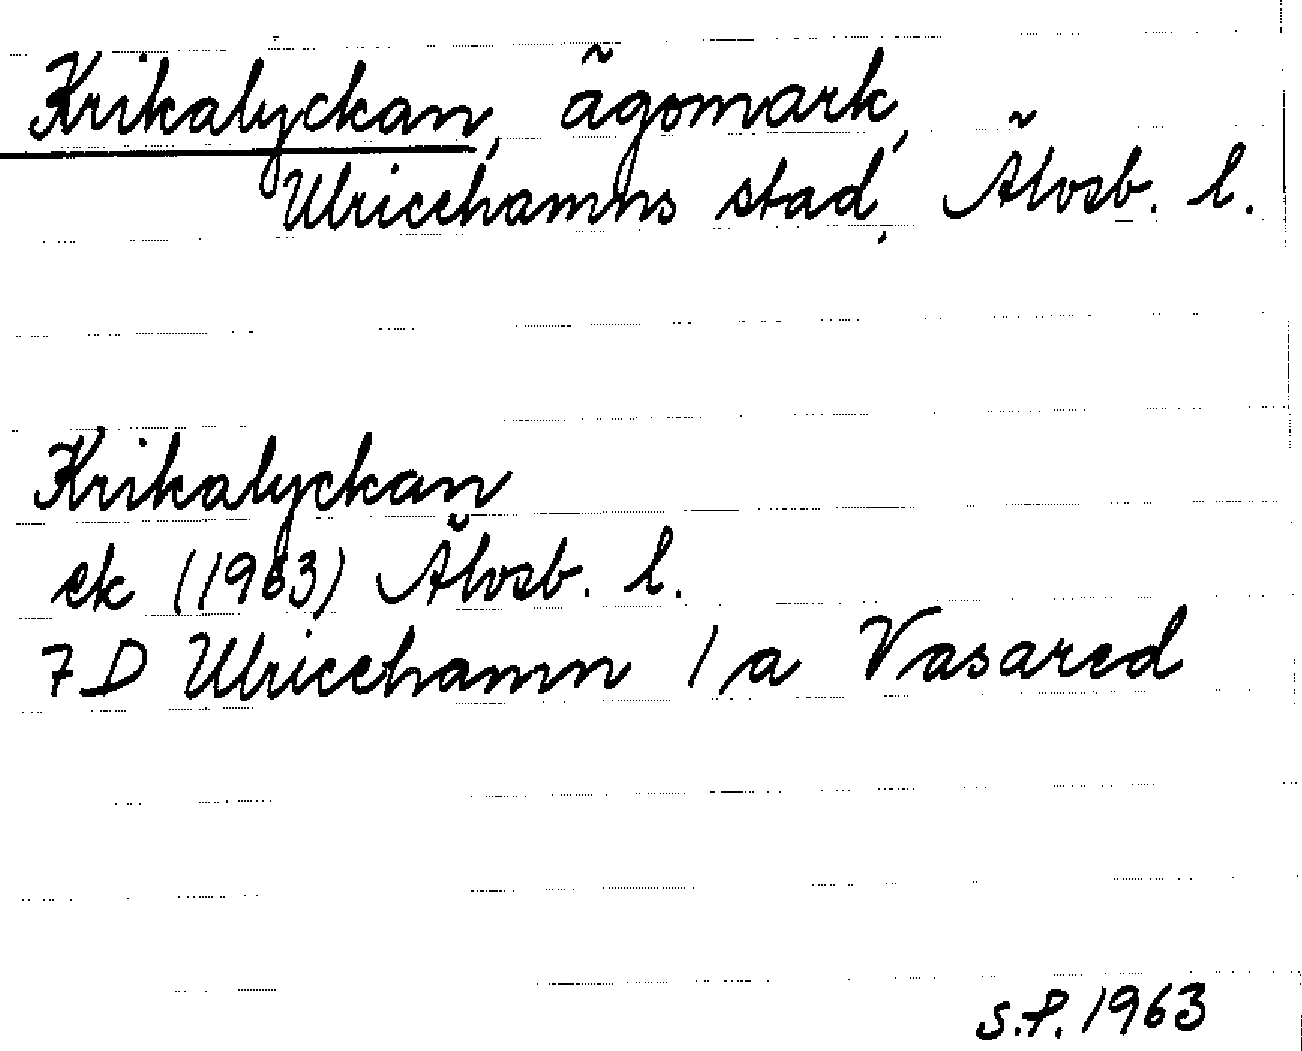 Krikalyckan, ägomark,
Ulricehamns stad, Älvsb. l.
Krikalyckan
ek (1963) Älvsb. l.
7D Ulricehamn 1a Vasared
S.P. 1963